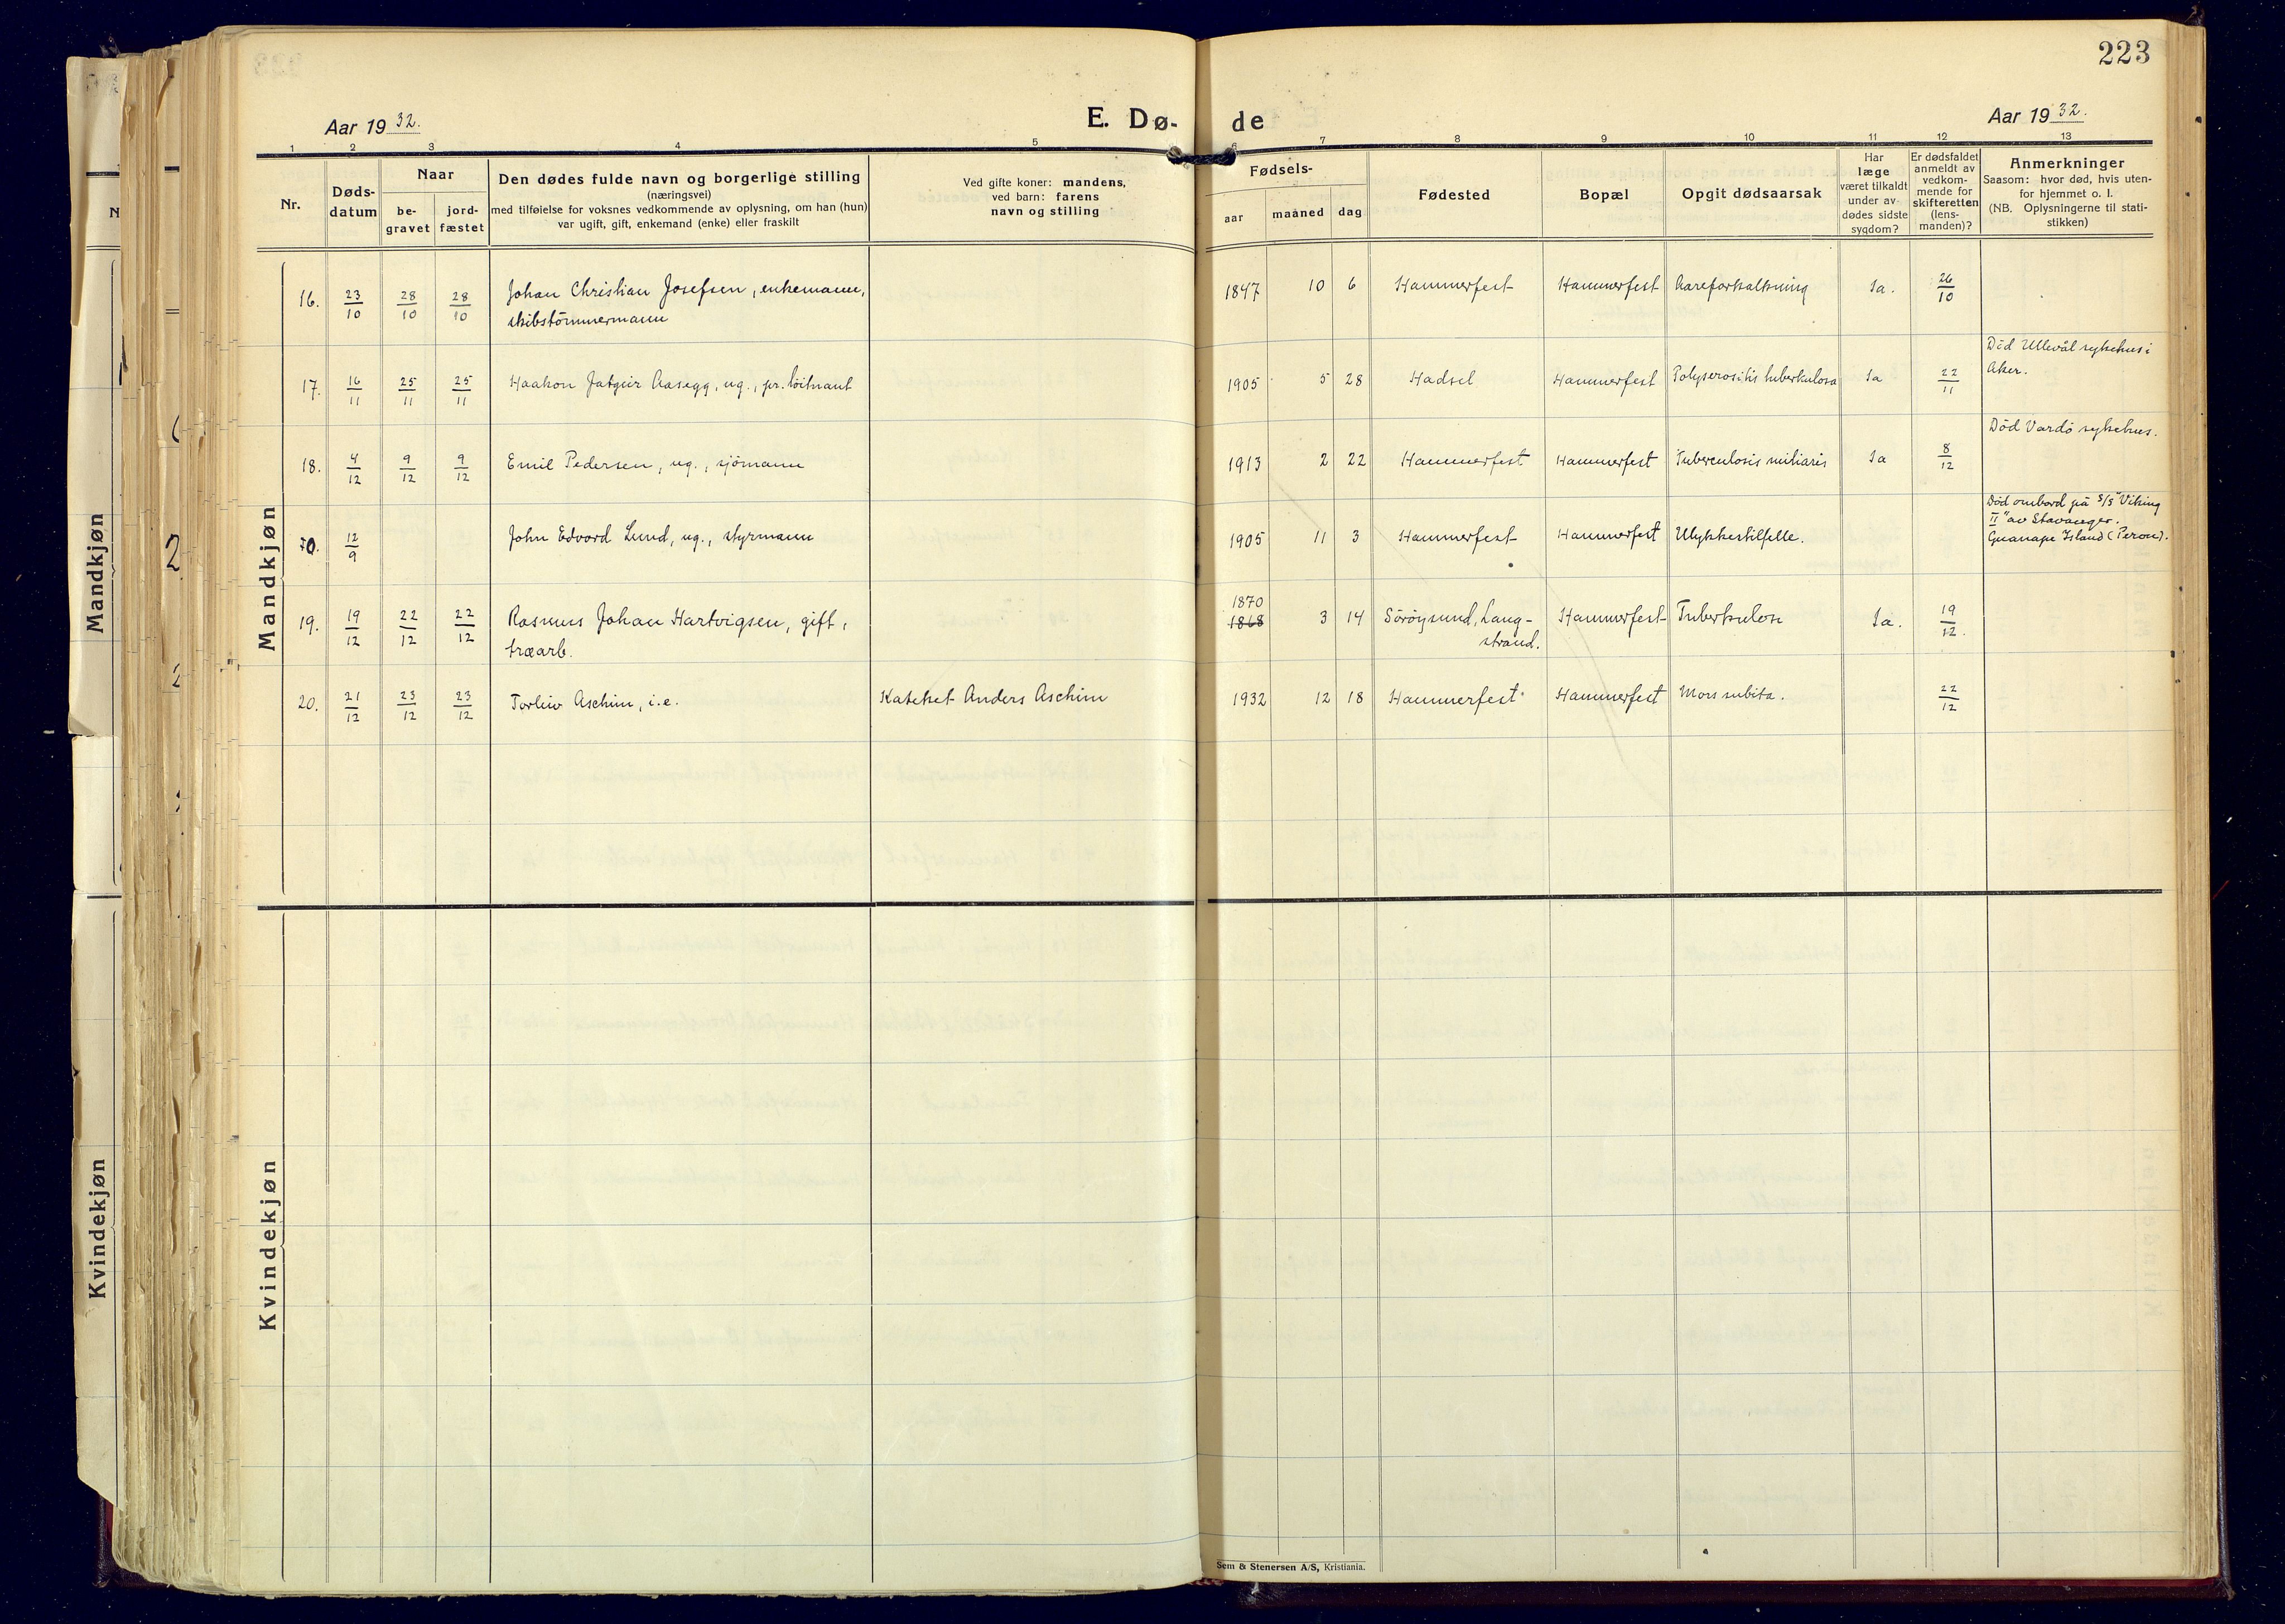 223
Aar 1932.
E. Dø-
de
Aar 1932.
1 2 3 4 5 6 7 8 9 10 11 12 13
Nr.
Døds-
datum
Naar
be-
gravet
jord-
fæstet
Den dødes fulde navn og borgerlige stilling
(næringsvei)
med tilføielse for voksnes vedkommende av oplysning, om han (hun)
var ugift, gift, enkemand (enke) eller fraskilt
Ved gifte koner: mandens,
ved barn: farens
navn og stilling
Fødsels-
aar
maaned
dag
Fødested
Bopæl
Opgit dødsaarsak
Har
læge
været tilkaldt
under av-
dødes sidste
sygdom?
Er dødsfaldet
anmeldt av
vedkom-
mende for
skifteretten
(lens-
manden)?
Anmerkninger
Saasom: hvor død, hvis uten-
for hjemmet o. l.
(NB. Oplysningerne til stati-
stikken)
Mandkjøn
16. 23/10 28/10 28/10 Johan Christian Josefsen, enkemann, 1847 10 6 Hammerfest Hammerfest Aareforkalkning Ja. 26/10
skibstömmermann
Död Ullevål sykehus i
Aker.
17. 16/11 25/11 25/11 Haakon Jatgeir Aasegg, ug., pr. löitnant 1905 5 28 Hadsel Hammerfest Polyserositis tuberkulosa Ja 22/11
Död Vardö sykehus.
18. 4/12 9/12 9/12 Emil Pedersen, ug., sjömann 1913 2 22 Hammerfest Hammerfest Tuberculosis miliaris Ja 8/12
Död ombord på S/S "Viking
II" av Stavanger.
Guanape Island (Perou).
70. 12/9 John Edvard Lund, ug., styrmann 1905 11 3 Hammerfest Hammerfest Ulykkestilfelle.
1870
19. 19/12 22/12 22/12 Rasmus Johan Hartvigsen, gift, 1868 3 14 Söröysund, Lang- Hammerfest Tuberkulose Ja. 19/12.
træarb. strand.
20. 21/12 23/12 23/12 Torleiv Aschim, i.e. Kateket Anders Aschim 1932 12 18 Hammerfest Hammerfest Mors subita. 22/12
Kvindekjøn
Sem & Stenersen A/S, Kristiania.
Mandkjøn
Kvindekjøn
N